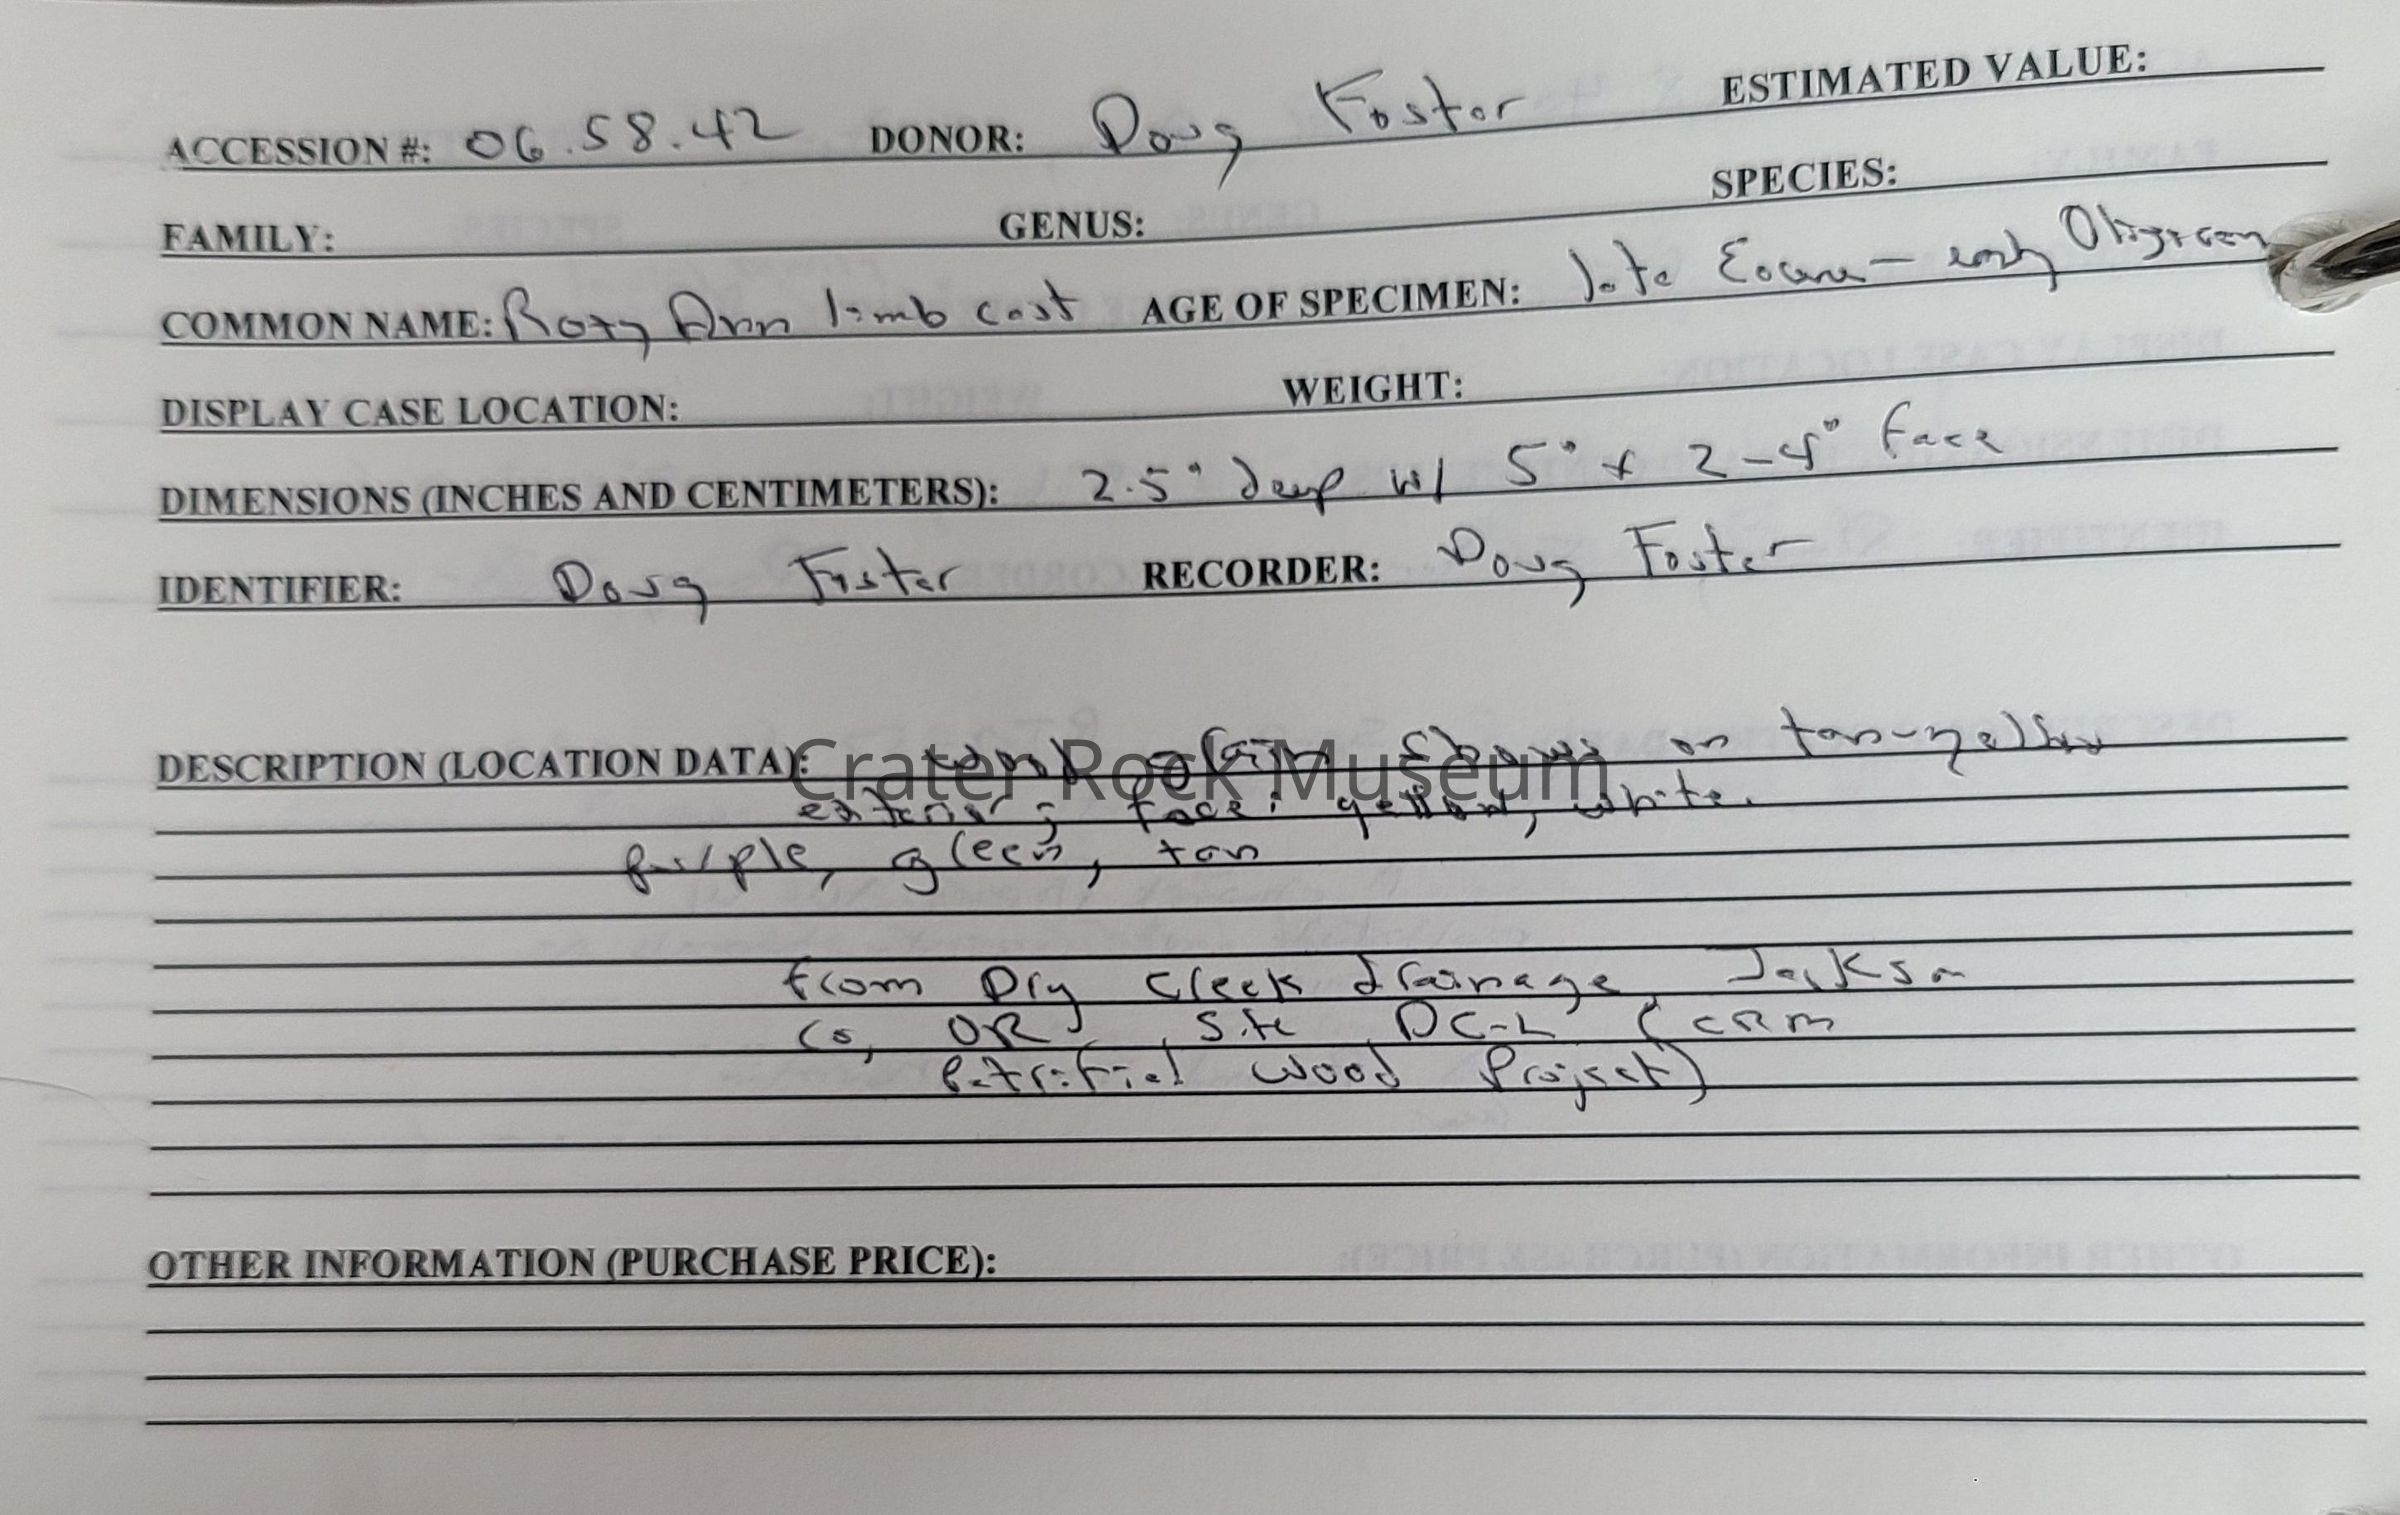 ACCESSION #: 06.58.42 DONOR: Doug Foster ESTIMATED VALUE:
FAMILY: GENUS: SPECIES:
COMMON NAME: Roxy Ann limb cast AGE OF SPECIMEN: late Eocene - early Oligocene
DISPLAY CASE LOCATION: WEIGHT:
DIMENSIONS (INCHES AND CENTIMETERS): 2.5" deep w/ 5" x 2-4" face
IDENTIFIER: Doug Foster RECORDER: Doug Foster
DESCRIPTION (LOCATION DATA): wood grain shows on tan-yellow
Crater Rock Museum
exterior; face: yellow, white,
purple, green, tan
from Dry Creek drainage, Jackson
Co, OR, site DC-L (CRM
petrified wood Project)
OTHER INFORMATION (PURCHASE PRICE):